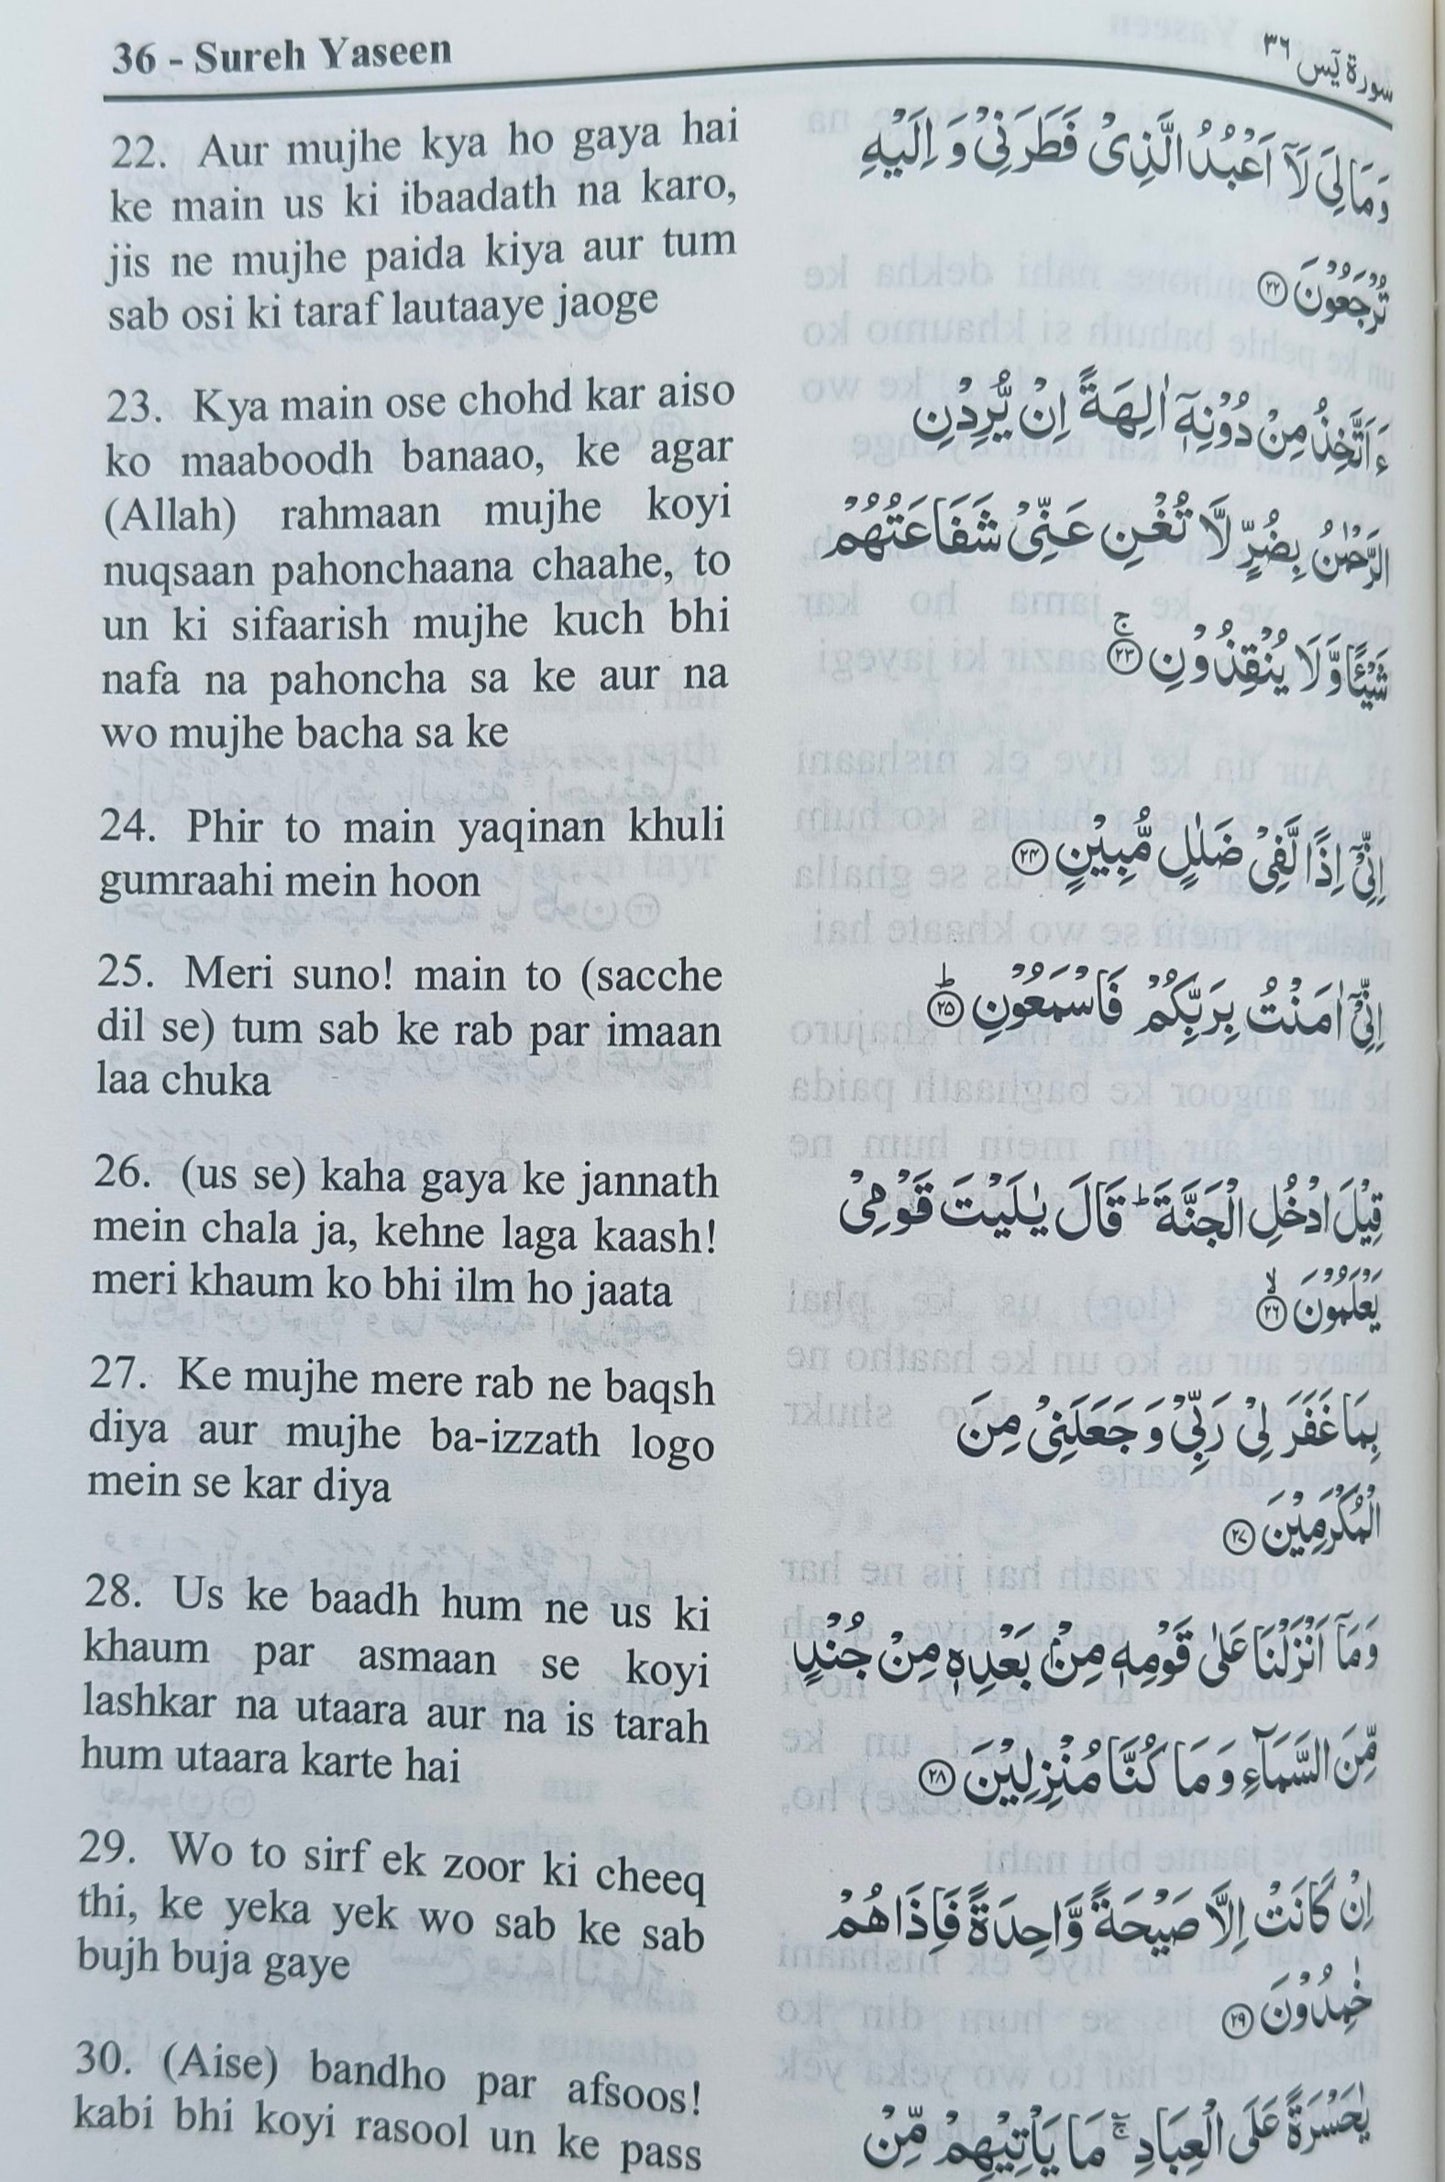 36 - Sureh Yaseen
سورة يٓس ٣٦
22. Aur mujhe kya ho gaya hai
ke main us ki ibaadath na karo,
jis ne mujhe paida kiya aur tum
sab osi ki taraf lautaaye jaoge
وَمَا لِيَ لَآ اَعْبُدُ الَّذِىْ فَطَرَنِىْ وَ اِلَيْهِ
تُرْجَعُوْنَ ﴿٢٢﴾
23. Kya main ose chohd kar aiso
ko maaboodh banaao, ke agar
(Allah) rahmaan mujhe koyi
nuqsaan pahonchaana chaahe, to
un ki sifaarish mujhe kuch bhi
nafa na pahoncha sa ke aur na
wo mujhe bacha sa ke
ءَاَتَّخِذُ مِنْ دُوْنِهٖٓ اٰلِهَةً اِنْ يُّرِدْنِ
الرَّحْمٰنُ بِضُرٍّ لَّا تُغْنِ عَنِّىْ شَفَاعَتُهُمْ
شَيْـًٔا وَّلَا يُنْقِذُوْنِ ۚ﴿٢٣﴾
24. Phir to main yaqinan khuli
gumraahi mein hoon
اِنِّىْٓ اِذًا لَّفِىْ ضَلٰلٍ مُّبِيْنٍ ﴿٢٤﴾
25. Meri suno! main to (sacche
dil se) tum sab ke rab par imaan
laa chuka
اِنِّىْٓ اٰمَنْتُ بِرَبِّكُمْ فَاسْمَعُوْنِ ؕ﴿٢٥﴾
26. (us se) kaha gaya ke jannath
mein chala ja, kehne laga kaash!
meri khaum ko bhi ilm ho jaata
قِيْلَ ادْخُلِ الْجَنَّةَ ؕ قَالَ يٰلَيْتَ قَوْمِىْ
يَعْلَمُوْنَ ۙ﴿٢٦﴾
27. Ke mujhe mere rab ne baqsh
diya aur mujhe ba-izzath logo
mein se kar diya
بِمَا غَفَرَ لِىْ رَبِّىْ وَ جَعَلَنِىْ مِنَ
الْمُكْرَمِيْنَ ﴿٢٧﴾
28. Us ke baadh hum ne us ki
khaum par asmaan se koyi
lashkar na utaara aur na is tarah
hum utaara karte hai
وَمَآ اَنْزَلْنَا عَلٰى قَوْمِهٖ مِنْۢ بَعْدِهٖ مِنْ جُنْدٍ
مِّنَ السَّمَآءِ وَ مَا كُنَّا مُنْزِلِيْنَ ﴿٢٨﴾
29. Wo to sirf ek zoor ki cheeq
thi, ke yeka yek wo sab ke sab
bujh buja gaye
اِنْ كَانَتْ اِلَّا صَيْحَةً وَّاحِدَةً فَاِذَا هُمْ
خٰمِدُوْنَ ﴿٢٩﴾
30. (Aise) bandho par afsoos!
kabi bhi koyi rasool un ke pass
يٰحَسْرَةً عَلَى الْعِبَادِ ۚ مَا يَاْتِيْهِمْ مِّنْ